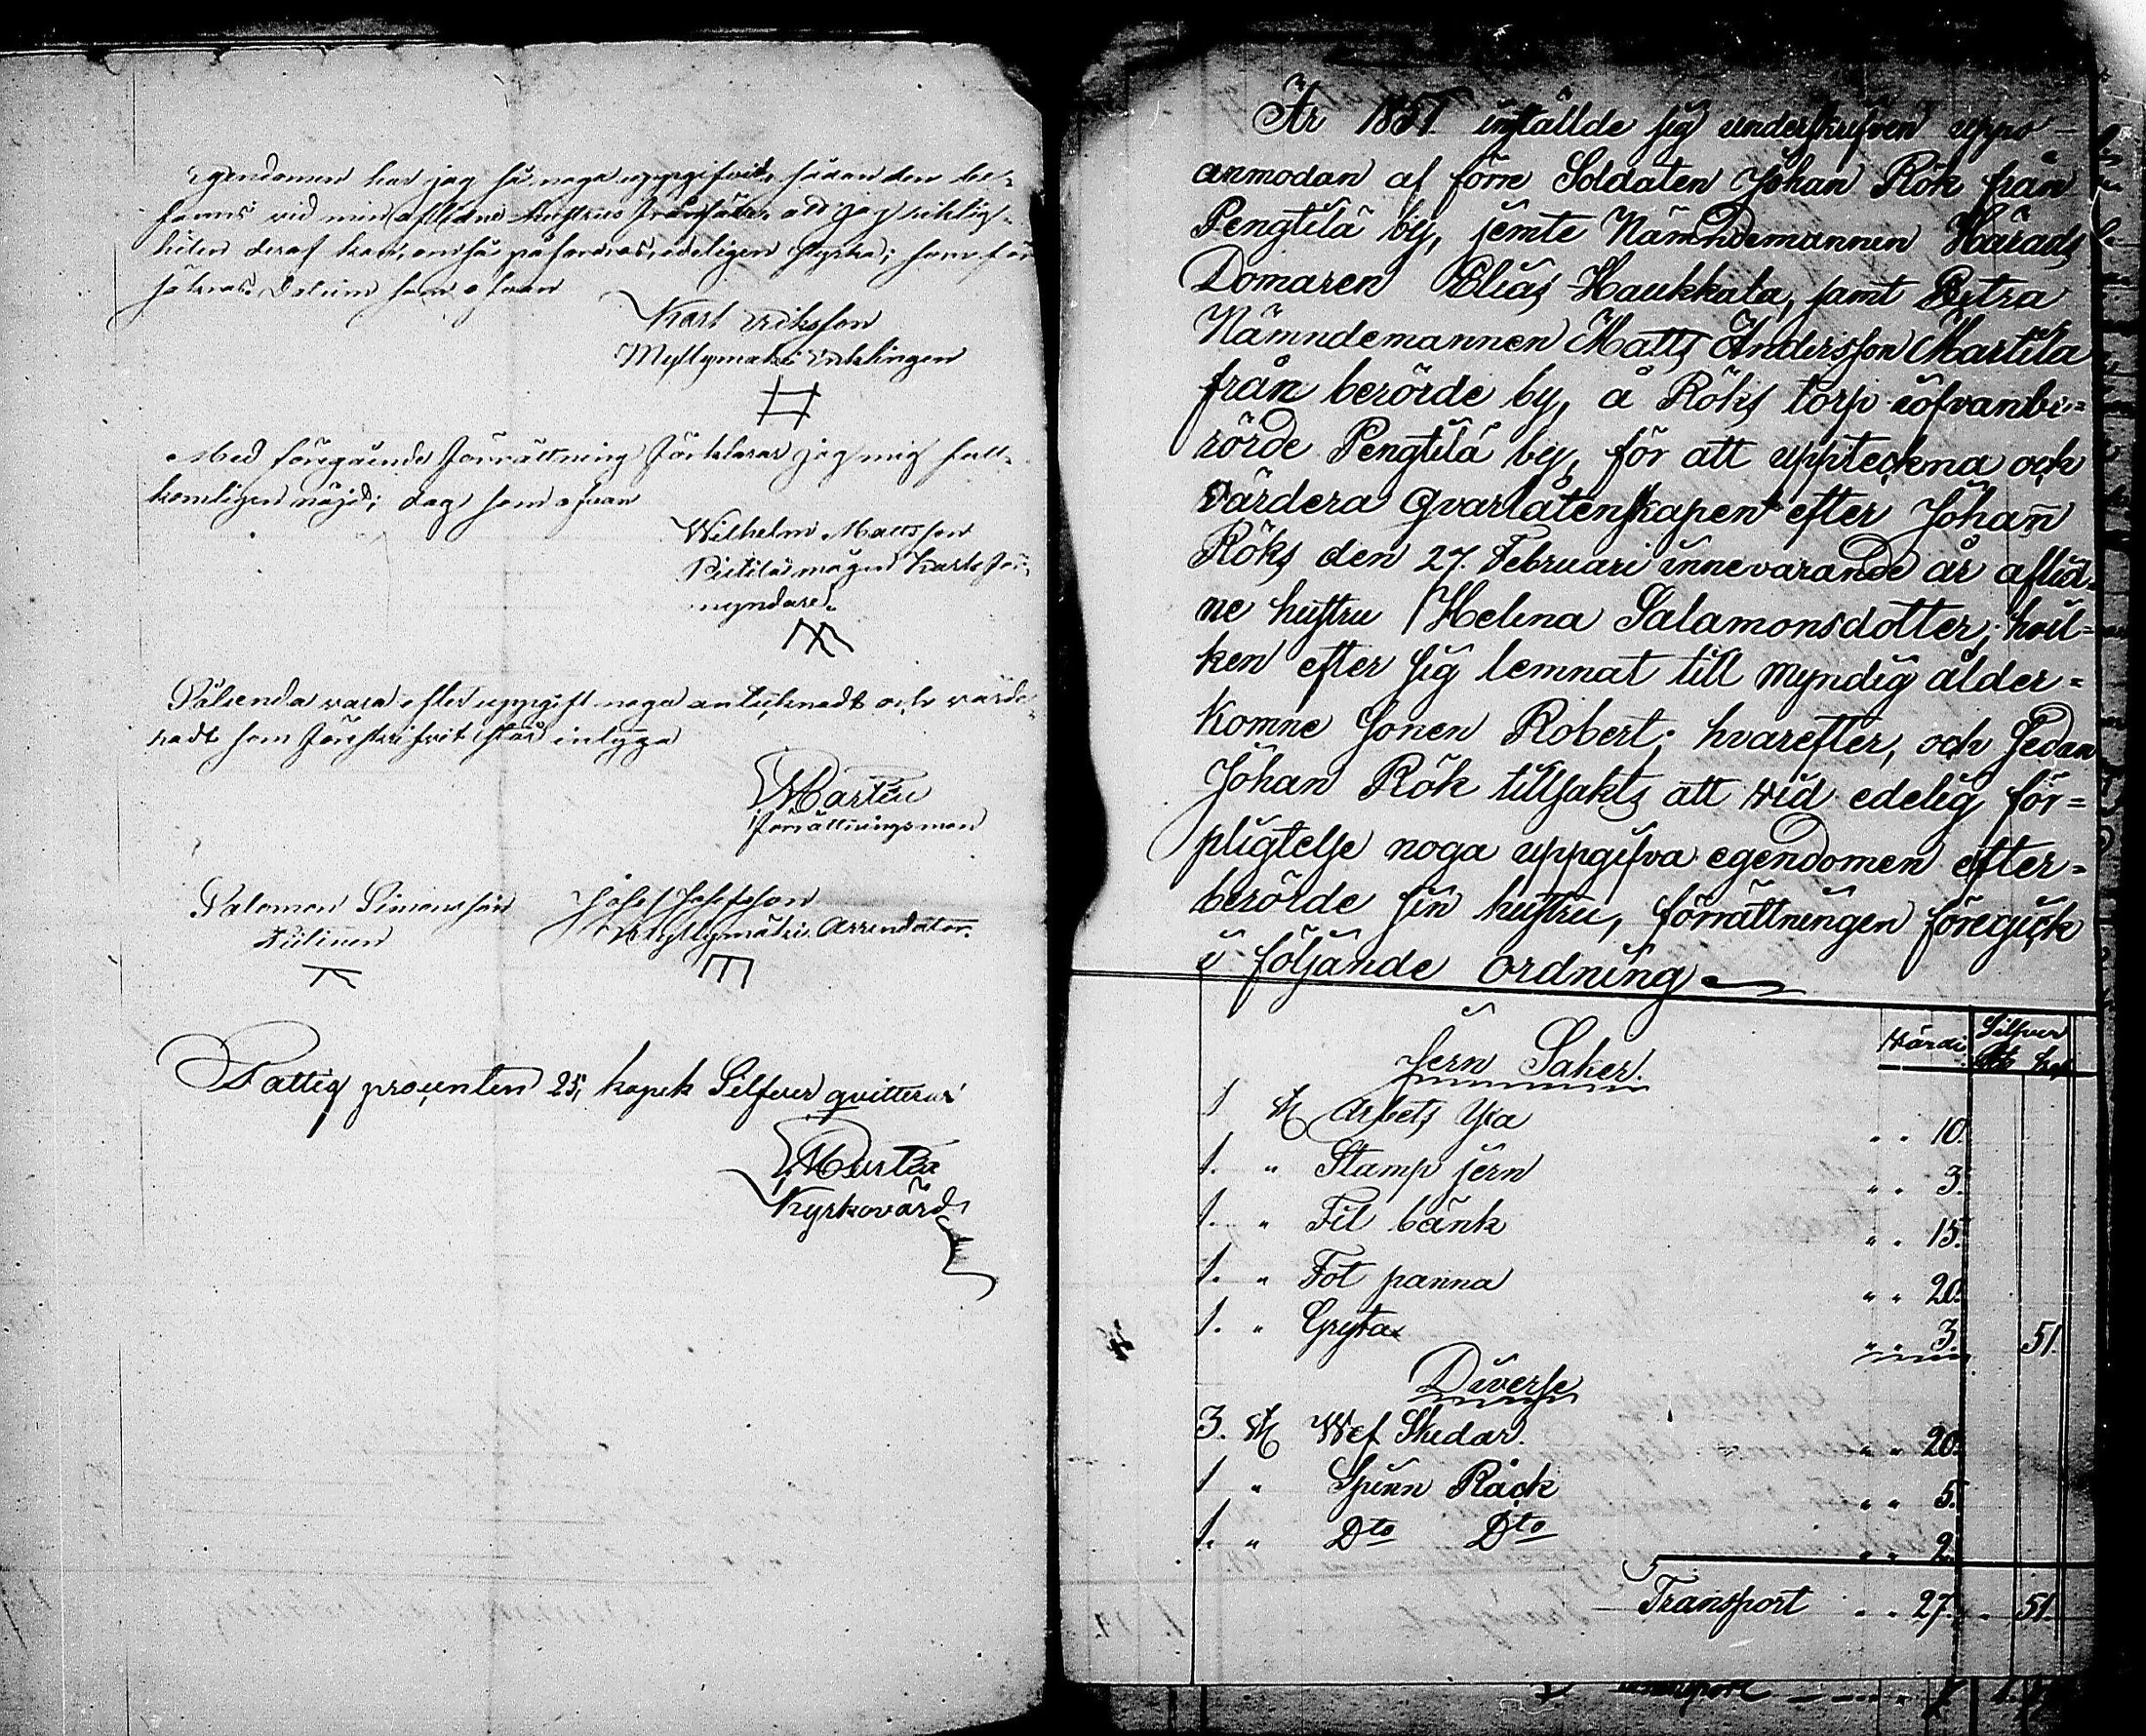 Egendomen har jag så noga uppgifvit, sådan den be-
fanns vid min aflidne hustrus frånfälle, att jag riktig-
heten deraf kan, om så påfordras, edeligen styrka; som för
säkras. Datum som ofvan
Karl Eriksson
Myllymaki Enklingen
Med föregående förrättning förklarar jag mig full-
komligen nöjd; dag som ofvan
Wilhelm Mattsson
Piitilä mågen Karls för-
myndare.
Sålunda vara efter uppgift noga antecknadt och värde-
radt som föreskrifvit står intyga
Martin
förrättningsman
Salomon Simonsson
Piilinen
Josef Josefsson
Myllymäki Arrendator.
Fattig procenten 25, kopek Silfver qvitteras
Martin
Kyrkovärd
År 1851 instälde sig underskrifven uppå
anmodan af förre Soldaten Johan Rök från
Pengtilä by, jemte Nämndemannen Härads
Domaren Elias Haukkala, samt Extra
Nämndemannen Matts Andersson Martila
från berörde by, å Röks torp i ofvanbe-
rörde Pengtilä by, för att uppteckna och
värdera qvarlåtenskapen efter Johan
Röks den 27. Februari innevarande år aflid-
ne hustru Helena Salamonsdotter; hvil-
ken efter sig lemnat till myndig ålder-
komne Sonen Robert; hvarefter, och sedan
Johan Rök tillsakts att vid edelig för-
pligtelse noga uppgifva egendomen efter-
berörde sin hustru, förrättningen föregick
i följande ordning
Jern Saker. Värde Silfver
Rb kop
1 st Arbets Yxa " " 10.
1. " Stamp jern " " 3.
1. " Fil bänk " " 15.
1. " Fot panna " " 20.
1. " Gryta " " 3. 51.
Diverse
3. st Wäf Skedar. " " 20.
1 " Spinn Råck " " 5.
1. " Dto Dto " " 2.
Transport " " 27. " 51.
Transport